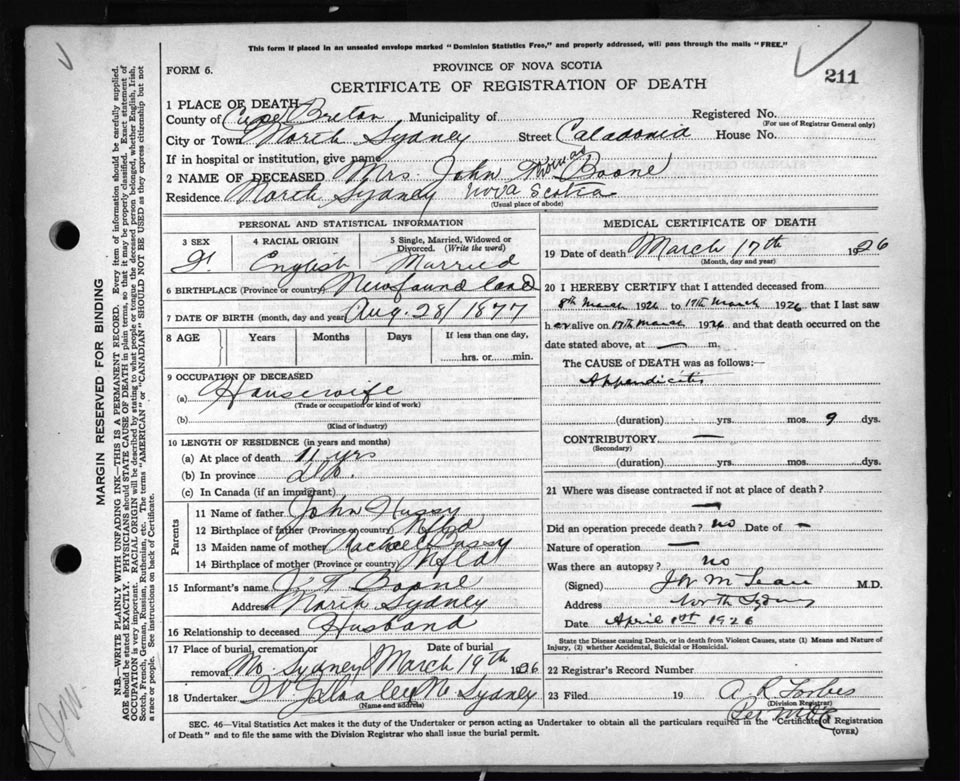 This form if placed in an unsealed envelope marked "Dominion Statistics Free," and properly addressed, will pass through the mails "FREE."
FORM 6.
PROVINCE OF NOVA SCOTIA
211
CERTIFICATE OF REGISTRATION OF DEATH
1 PLACE OF DEATH—
County of Cape Breton Municipality of Registered No.
(For use of Registrar General only)
City or Town North Sydney Street Caladonia House No.
If in hospital or institution, give name
2 NAME OF DECEASED Mrs. John Thomas Boone
Residence North Sydney Nova Scotia
(Usual place of abode)
PERSONAL AND STATISTICAL INFORMATION
3 SEX 4 RACIAL ORIGIN 5 Single, Married, Widowed or Divorced. (Write the word)
F. English Married
6 BIRTHPLACE (Province or country) Newfoundland
7 DATE OF BIRTH (month, day and year) Aug. 28/1877
8 AGE Years Months Days If less than one day,
hrs. or min.
9 OCCUPATION OF DECEASED
(a) Housewife
(Trade or occupation or kind of work)
(b)
(Kind of industry)
10 LENGTH OF RESIDENCE (in years and months)
(a) At place of death 11 yrs
(b) In province do.
(c) In Canada (if an immigrant)
Parents
11 Name of father John Hussy
12 Birthplace of father (Province or country) Nfld
13 Maiden name of mother Rachel
14 Birthplace of mother (Province or country) Nfld
15 Informant's name J. T. Boone
Address North Sydney
16 Relationship to deceased Husband
17 Place of burial, cremation or removal Date of burial
No. Sydney March 19th 1926
18 Undertaker No Sydney
(Name and address)
MEDICAL CERTIFICATE OF DEATH
19 Date of death March 17th 1926
(Month, day and year)
20 I HEREBY CERTIFY that I attended deceased from
8th March 1926 to 17th March 1926 that I last saw
her alive on 17th March 1926 and that death occurred on the
date stated above, at — m.
The CAUSE of DEATH was as follows:—
Appendicitis
(duration) yrs. mos. 9 dys.
CONTRIBUTORY —
(Secondary)
(duration) yrs. mos. dys.
21 Where was disease contracted if not at place of death?
—
Did an operation precede death? no Date of —
Nature of operation —
Was there an autopsy? no
(Signed) J W McLean M.D.
Address North Sydney
Date April 1st 1926
State the Disease causing Death, or in death from Violent Causes, state (1) Means and Nature of Injury, (2) whether Accidental, Suicidal or Homicidal.
22 Registrar's Record Number
23 Filed 19 A R Forbes
(Division Registrar)
Per
SEC. 46—Vital Statistics Act makes it the duty of the Undertaker or person acting as Undertaker to obtain all the particulars required in the "Certificate of Registration
of Death" and to file the same with the Division Registrar who shall issue the burial permit.
(OVER)
MARGIN RESERVED FOR BINDING
N.B.—WRITE PLAINLY WITH UNFADING INK—THIS IS A PERMANENT RECORD. Every item of information should be carefully supplied.
AGE should be stated EXACTLY. PHYSICIANS should STATE CAUSE OF DEATH in plain terms, so that it may be properly classified. Exact statement of
OCCUPATION is very important. RACIAL ORIGIN will be described by stating to what people or tongue the deceased person belonged, whether English, Irish,
Scotch, French, German, Russian, Ruthenian, etc. The terms "AMERICAN" or "CANADIAN" SHOULD NOT BE USED as they express citizenship but not
a race or people. See instructions on back of Certificate.